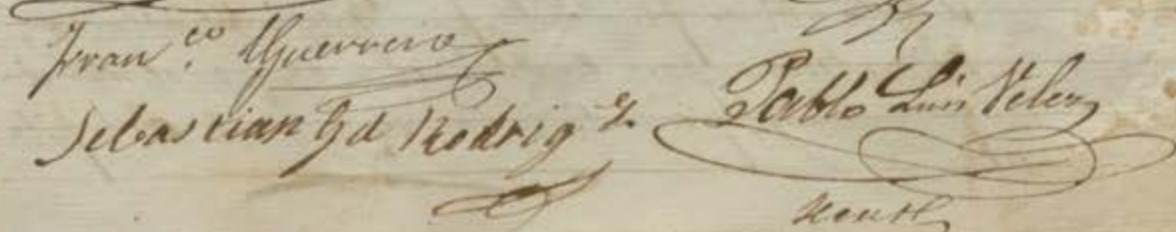 Fran.co Guerrero
Sebastian Gd Rodrigz
Pablo Luis Velez